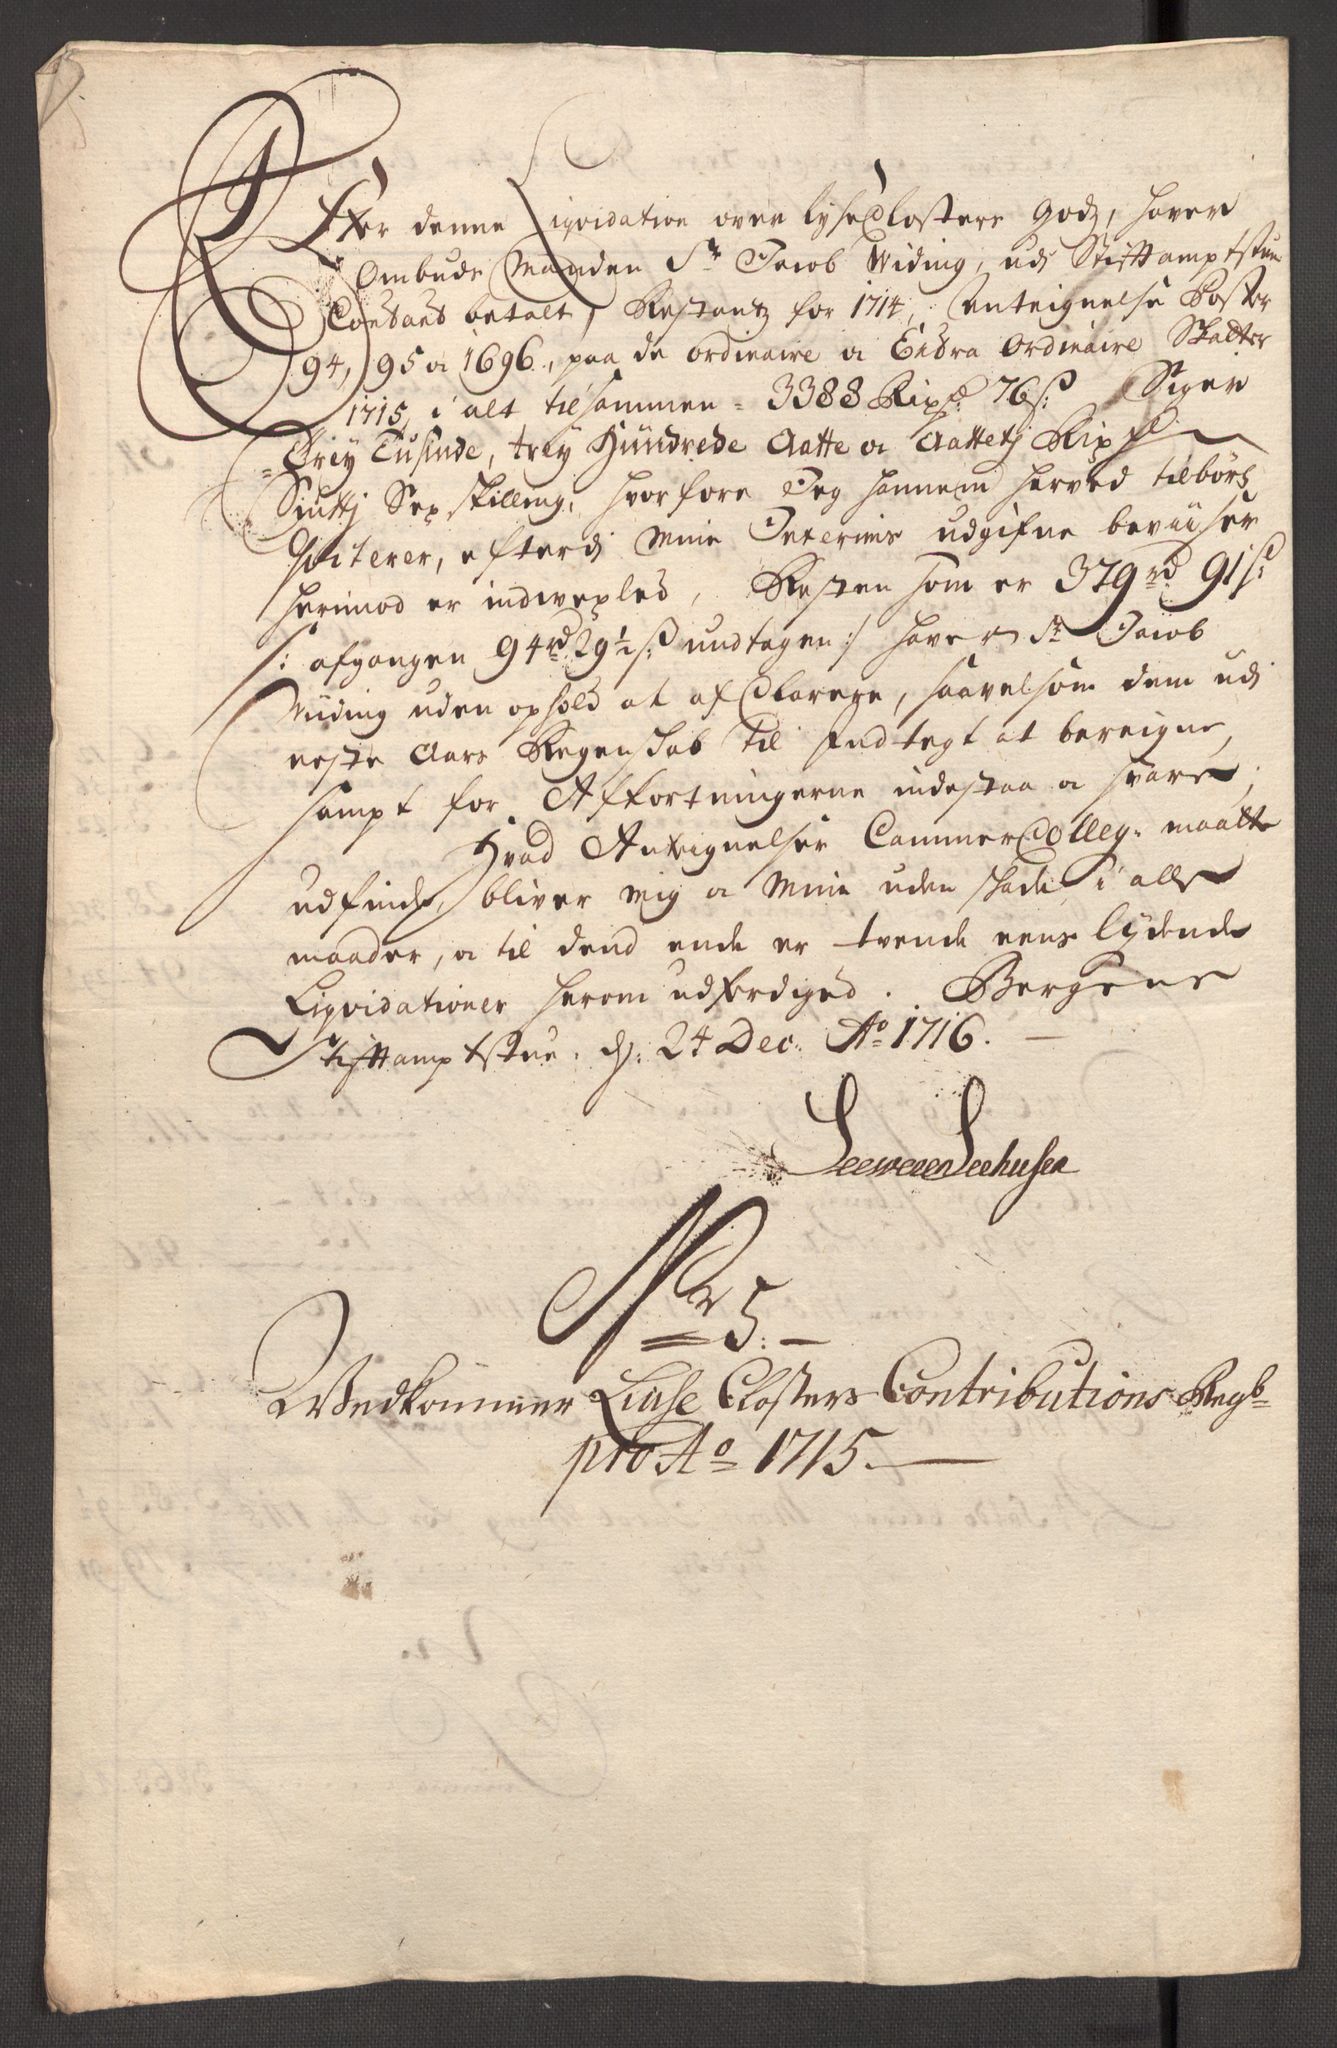 Efter denne Liqvidation over lyse Closters Godz, haver
Ombuds Manden Sr. Jacob Widing, udj Stifttamptstuen
Contant betalt, Restantz for 1714, Anteignelse Poster
94, 95 og 1696, paa de ordinaire og Extra Ordinaire Skatter
1715, i alt tilsammen = 3388 Rixd. 76 s: Siger
Trey Tusinde, trey Hündrede Aatte og Aattetj Rixd.
Siuttj Sex skilling, hvorfore Jeg hannem herved tilbörl.
Qviterer, efterdj mine Interims udgifne beviiser
herimod er indvexled, Resten som er 379 rd. 91 s:
/: afgangen 94 rd. 29½ s: undtagen :/ haver Sr. Jacob
Widing uden ophold at afClarere, saavelsom dem udj
neste Aars Regenskab til Indtegt at bereigne,
sampt for Afkortningerne indestaa og svare,
Hvad Antegnelser Cammer Colleg: maatte
udfinde, bliver mig og mine uden skade i alle
maader, og til dend ende er tvende eens lydende
Liqvidationer herom udferdiged. Bergens
Stifttamptstue, dj: 24 Dec: Ao 1716.
Seeweren Seehusen
Nr 5.
Wedkommer Liuse Closters Contributions Regb
pro Ao 1715.